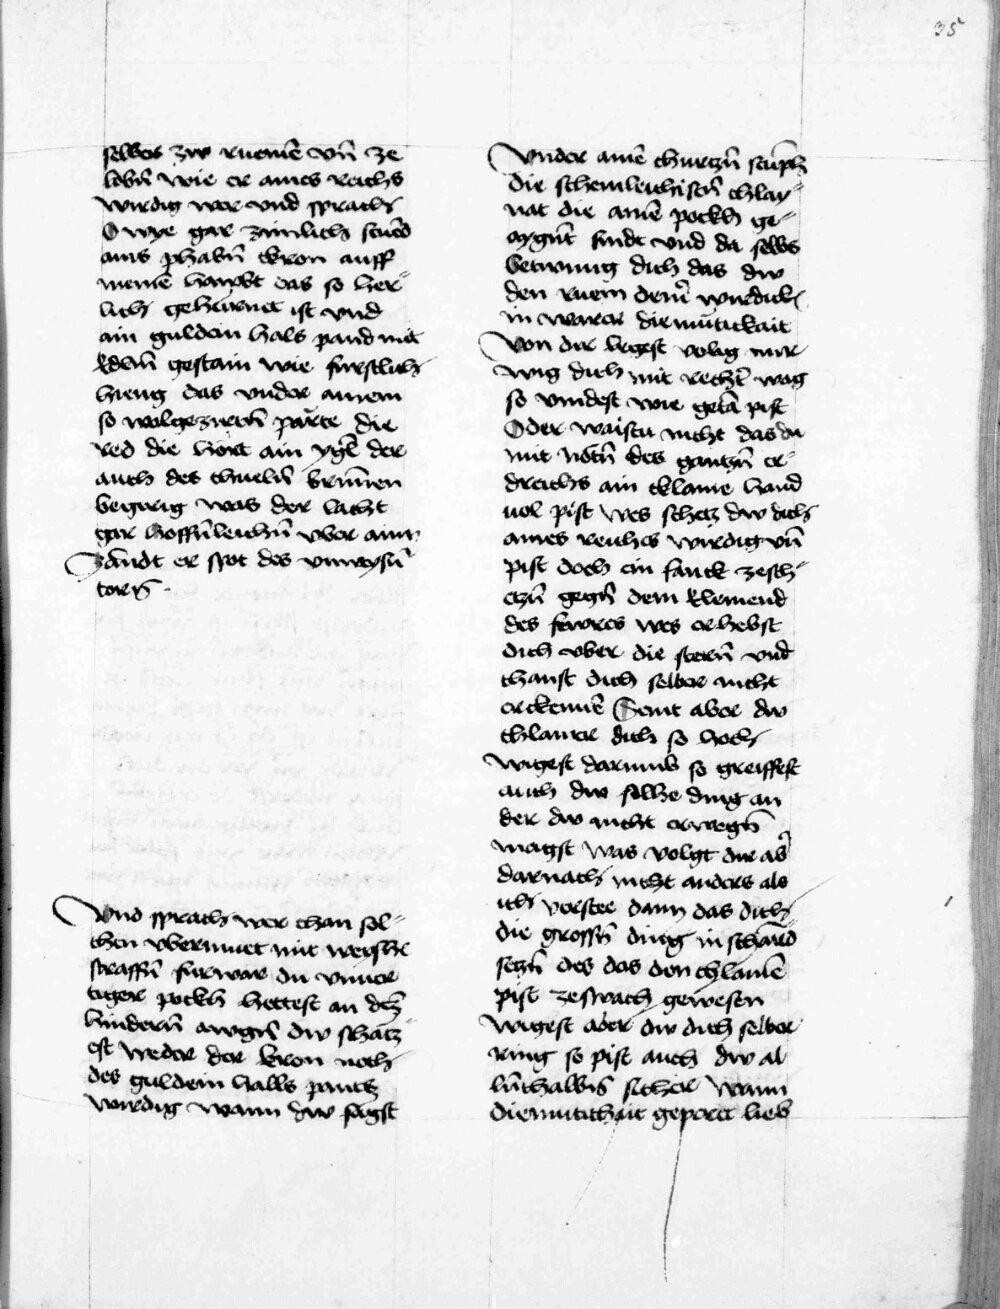 35
selber zw ruemē vn̄ ze
lobn̄ wie er aines reichs
wirdig wer vnd sprach
O wye gar zimlich scūed
ains phabn̄ kron auff
meinē haupt das so her-
lich gehürnet ist vnd
ain guldein hals pand mit
Edelm̄ gestain wie furstlich
hieng das vnder ainem
so wolgeziertn̄ parte die
red die hort ain ygel der
auch des chueln̄ brun̄en
begirig was der lacht
gar hoffn̄leichn̄ vber ainn
Zandt er spot des vnweysn̄
torn̄
Vnd sprach wer chan sol-
chen vbermuet mit weishe
straffn̄ furwar du vnuer
tiger pockh hettest an dē
hindern̄ awgn̄ dw schatz-
est weder der kron noch
des guldein halls pantz
wirdig wann dw sagst
Vnder ainē churtzn̄ scūptz
die schemleichistn̄ chlay-
nat die ainē pockh ge-
aygnt sindt vnd da selbs
betwing dich das dw
den ruem deinˀ wirdich
in warer diemūtickait
Von dir legest volig nur
wig dich mit rechtˀ wag
so vindest wie getā pist
Oder waistu nicht das du
mit nötn̄ des gantzn̄ er-
dreichs ain klaine hand
uol pist wes schetz dw dich
aines reiches wirdig vn̄
pist doch ein fanck zesch-
etzn̄ gegn̄ dem Element
des fewres wes erhebst
dich vber die stern̄ vnd
chanst dich selber nicht
erckennē Seint aber dw
chlainer dich so hoch
wigest darumb so greiffest
auch dw solhe ding an
der dw nicht erwegn̄
magst was volgt dir abˀ
darnach nicht anders als
ich verstee dann das dich
die grossn̄ ding in schand
setzn̄ des das den chlainē
pist zeswach gewesen
wigest aber dw dich selber
ring so pist auch dw al
ln̄thalbn̄ sicher Wann
diemutichait geperet lieb